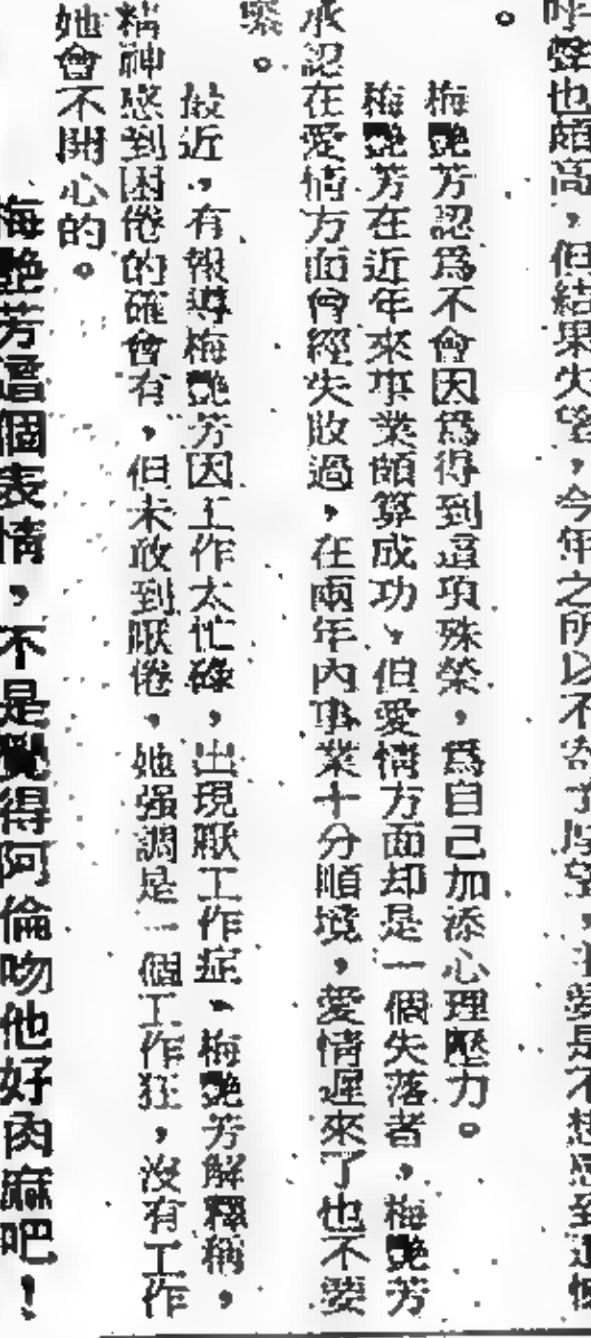 呼聲也頗高，但結果失望，今年之所以不寄予厚望，主要是不想感到遺憾
。
梅艷芳認爲不會因爲得到這項殊榮，爲自己加添心理壓力。
梅艷芳在近年來事業頗算成功，但愛情方面却是一個失落者，梅艷芳
承認在愛情方面曾經失敗過，在兩年内事業十分順境，愛情遲來了也不要
緊。
最近，有報導梅艷芳因工作太忙碌，出現厭工作症，梅艷芳解釋稱，
精神感到困倦的確會有，但未敢到厭倦，她强調是一個工作狂，沒有工作
她會不開心的。
梅艷芳這個表情，不是覺得阿倫吻他好肉麻吧！